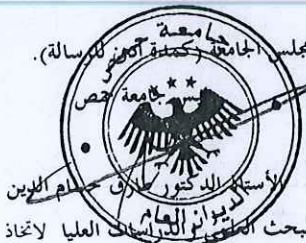 مجلس الجامعة (كمدة للرسالة).
جامعة
جامعة حمص
الأستاذ الدكتور طارق حسام الدين
الديوان العام
البحث العلمي والدراسات العليا لاتخاذ